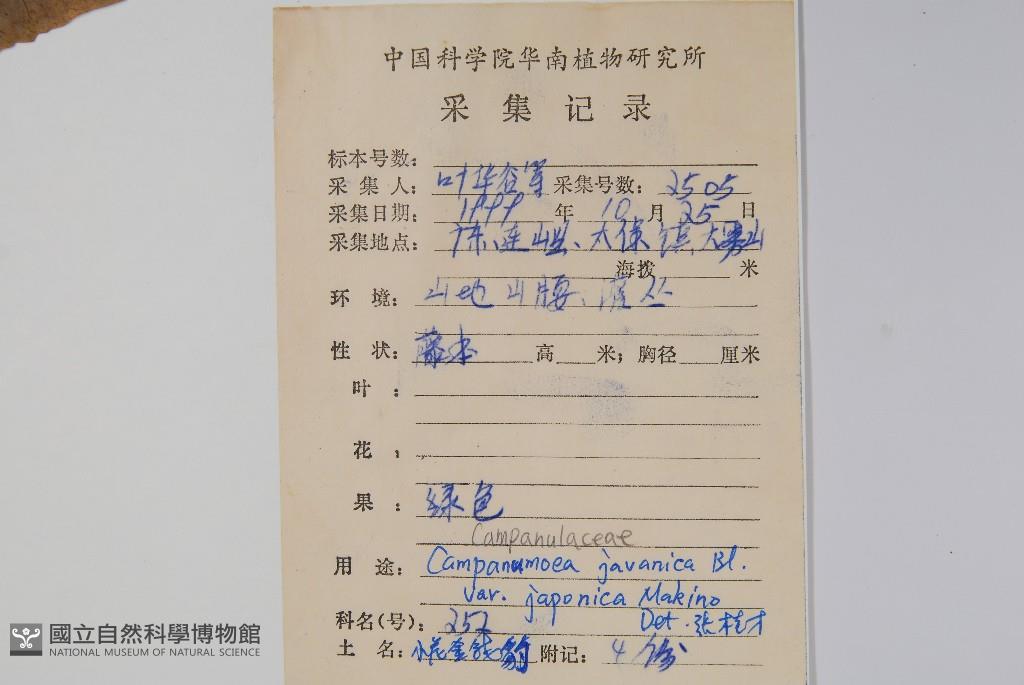 中国科学院华南植物研究所
采集记录
标本号数:
采集人: 叶华谷等 采集号数: 2505
采集日期: 1999 年 10 月 25 日
采集地点: 广东、连山县、太保镇、大雾山
海拨 米
环境: 山地山腰、灌丛
性状: 藤本 高 米; 胸径 厘米
叶:
花:
果: 绿色
Campanulaceae
用途: Campanumoea javanica Bl.
var. japonica Makino
科名(号): 252 Det. 张桂才
土名: 小花金钱豹 附记: 4份
國立自然科學博物館
NATIONAL MUSEUM OF NATURAL SCIENCE